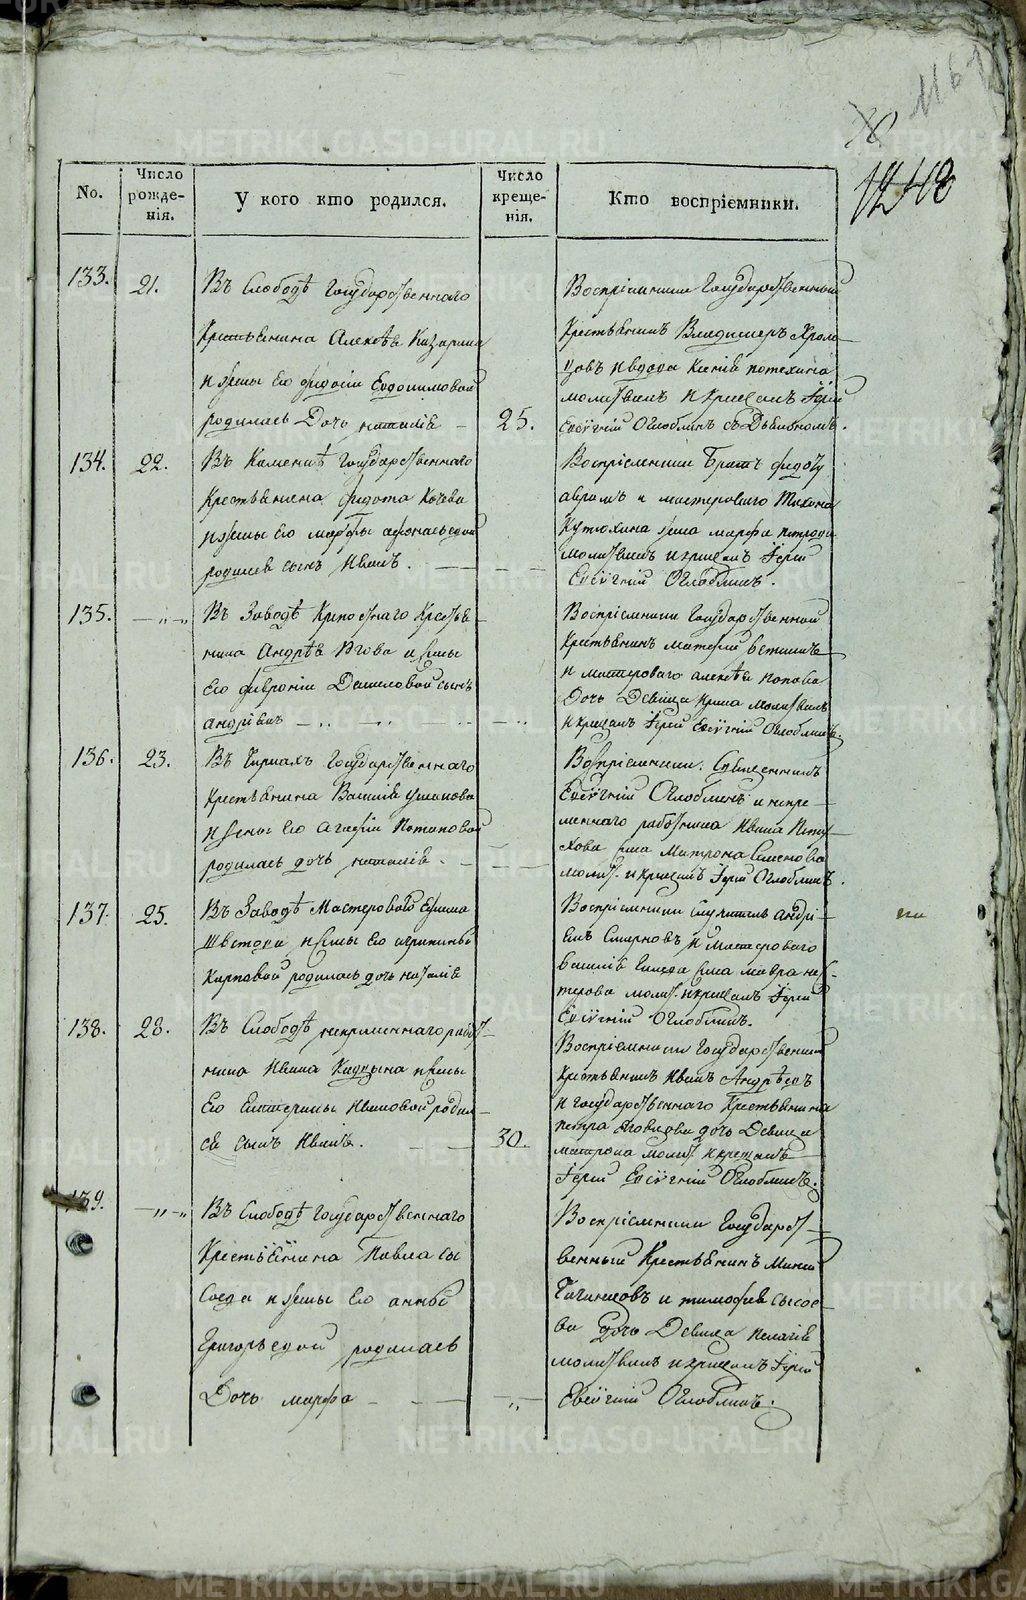 1167
1248
No.
Число
рожде-
нія.
У кого кто родился.
Число
креще-
нія.
Кто воспріемники.
133.
21.
Въ Слободѣ Государственнаго
Крестьянина Алексѣя Казарина
и жены его Евдокимовой
родилась Дочь наталія
25.
Воспріемники Государственный
Крестьянинъ Владимеръ Хром-
цовъ и вдова Ксенія потехина
молитвилъ и крещалъ Іерей
Евѳѵгній Оглоблинъ съ Дьякономъ.
134.
22.
Въ Каменкѣ Государственнаго
Крестьянина федота
и жены его марфы афонасьевой
родился сынъ Иванъ.
Воспріемники Братъ
и мастероваго Тихона
Кутюхина жена марфа
молитвилъ и крещалъ Іерей
Евѳѵгній Оглоблинъ.
135.
Въ Заводѣ Крепостнаго Крестья-
нина Андрѣя и жены
Его февроніи Даниловой сынъ
андріянъ
Воспріемники Государственной
Крестьянинъ матфей
и мастероваго алексѣя попова
Дочь Девица Ирина молитвилъ
и крещалъ Іерей Евѳѵгній Оглоблинъ.
136.
23.
Въ Государственнаго
Крестьянина Василія Ушакова
и жены Его Агафіи Потаповой
родилась дочь наталія.
Воспріемники: Священникъ
Евѳѵгній Оглоблинъ и непре-
меннаго работника Ивана Пету-
хова жена Матрона Семенова
молит. и крещалъ Іерей Оглоблинъ.
137.
25.
Въ Заводѣ Мастероваго Ефима
Шветова и жены Его агрипины
Карповой родилась дочь наталія
Воспріемники служитель андрі-
янъ Смирновъ и мастероваго
василія жена мавра не-
терова молит. и крещалъ Іерей
Евѳѵгній Оглоблинъ.
138.
28.
Въ Слободѣ непременнаго работ-
ника Ивана и жены
Его Екатерины Ивановой родил-
ся сынъ Иванъ.
30.
Воспріемники Государственный
Крестьянинъ Иванъ Андрѣевъ
и государственнаго Крестьянина
петра дочь Девица
матрона молит. и крещалъ
Іерей Евѳѵгній Оглоблинъ.
139.
Въ Слободѣ Государственнаго
Крестьянина Павла Сы
соева и жены Его анны
Григорьевой родилась
Дочь марфа
Воспріемники Государст-
венный Крестьянинъ
и тимофея сысое-
ва дочь Девица пелагія
молитвилъ и крещалъ Іерей
Евѳѵгній Оглоблинъ.
METRIKI.GASO-URAL.RU